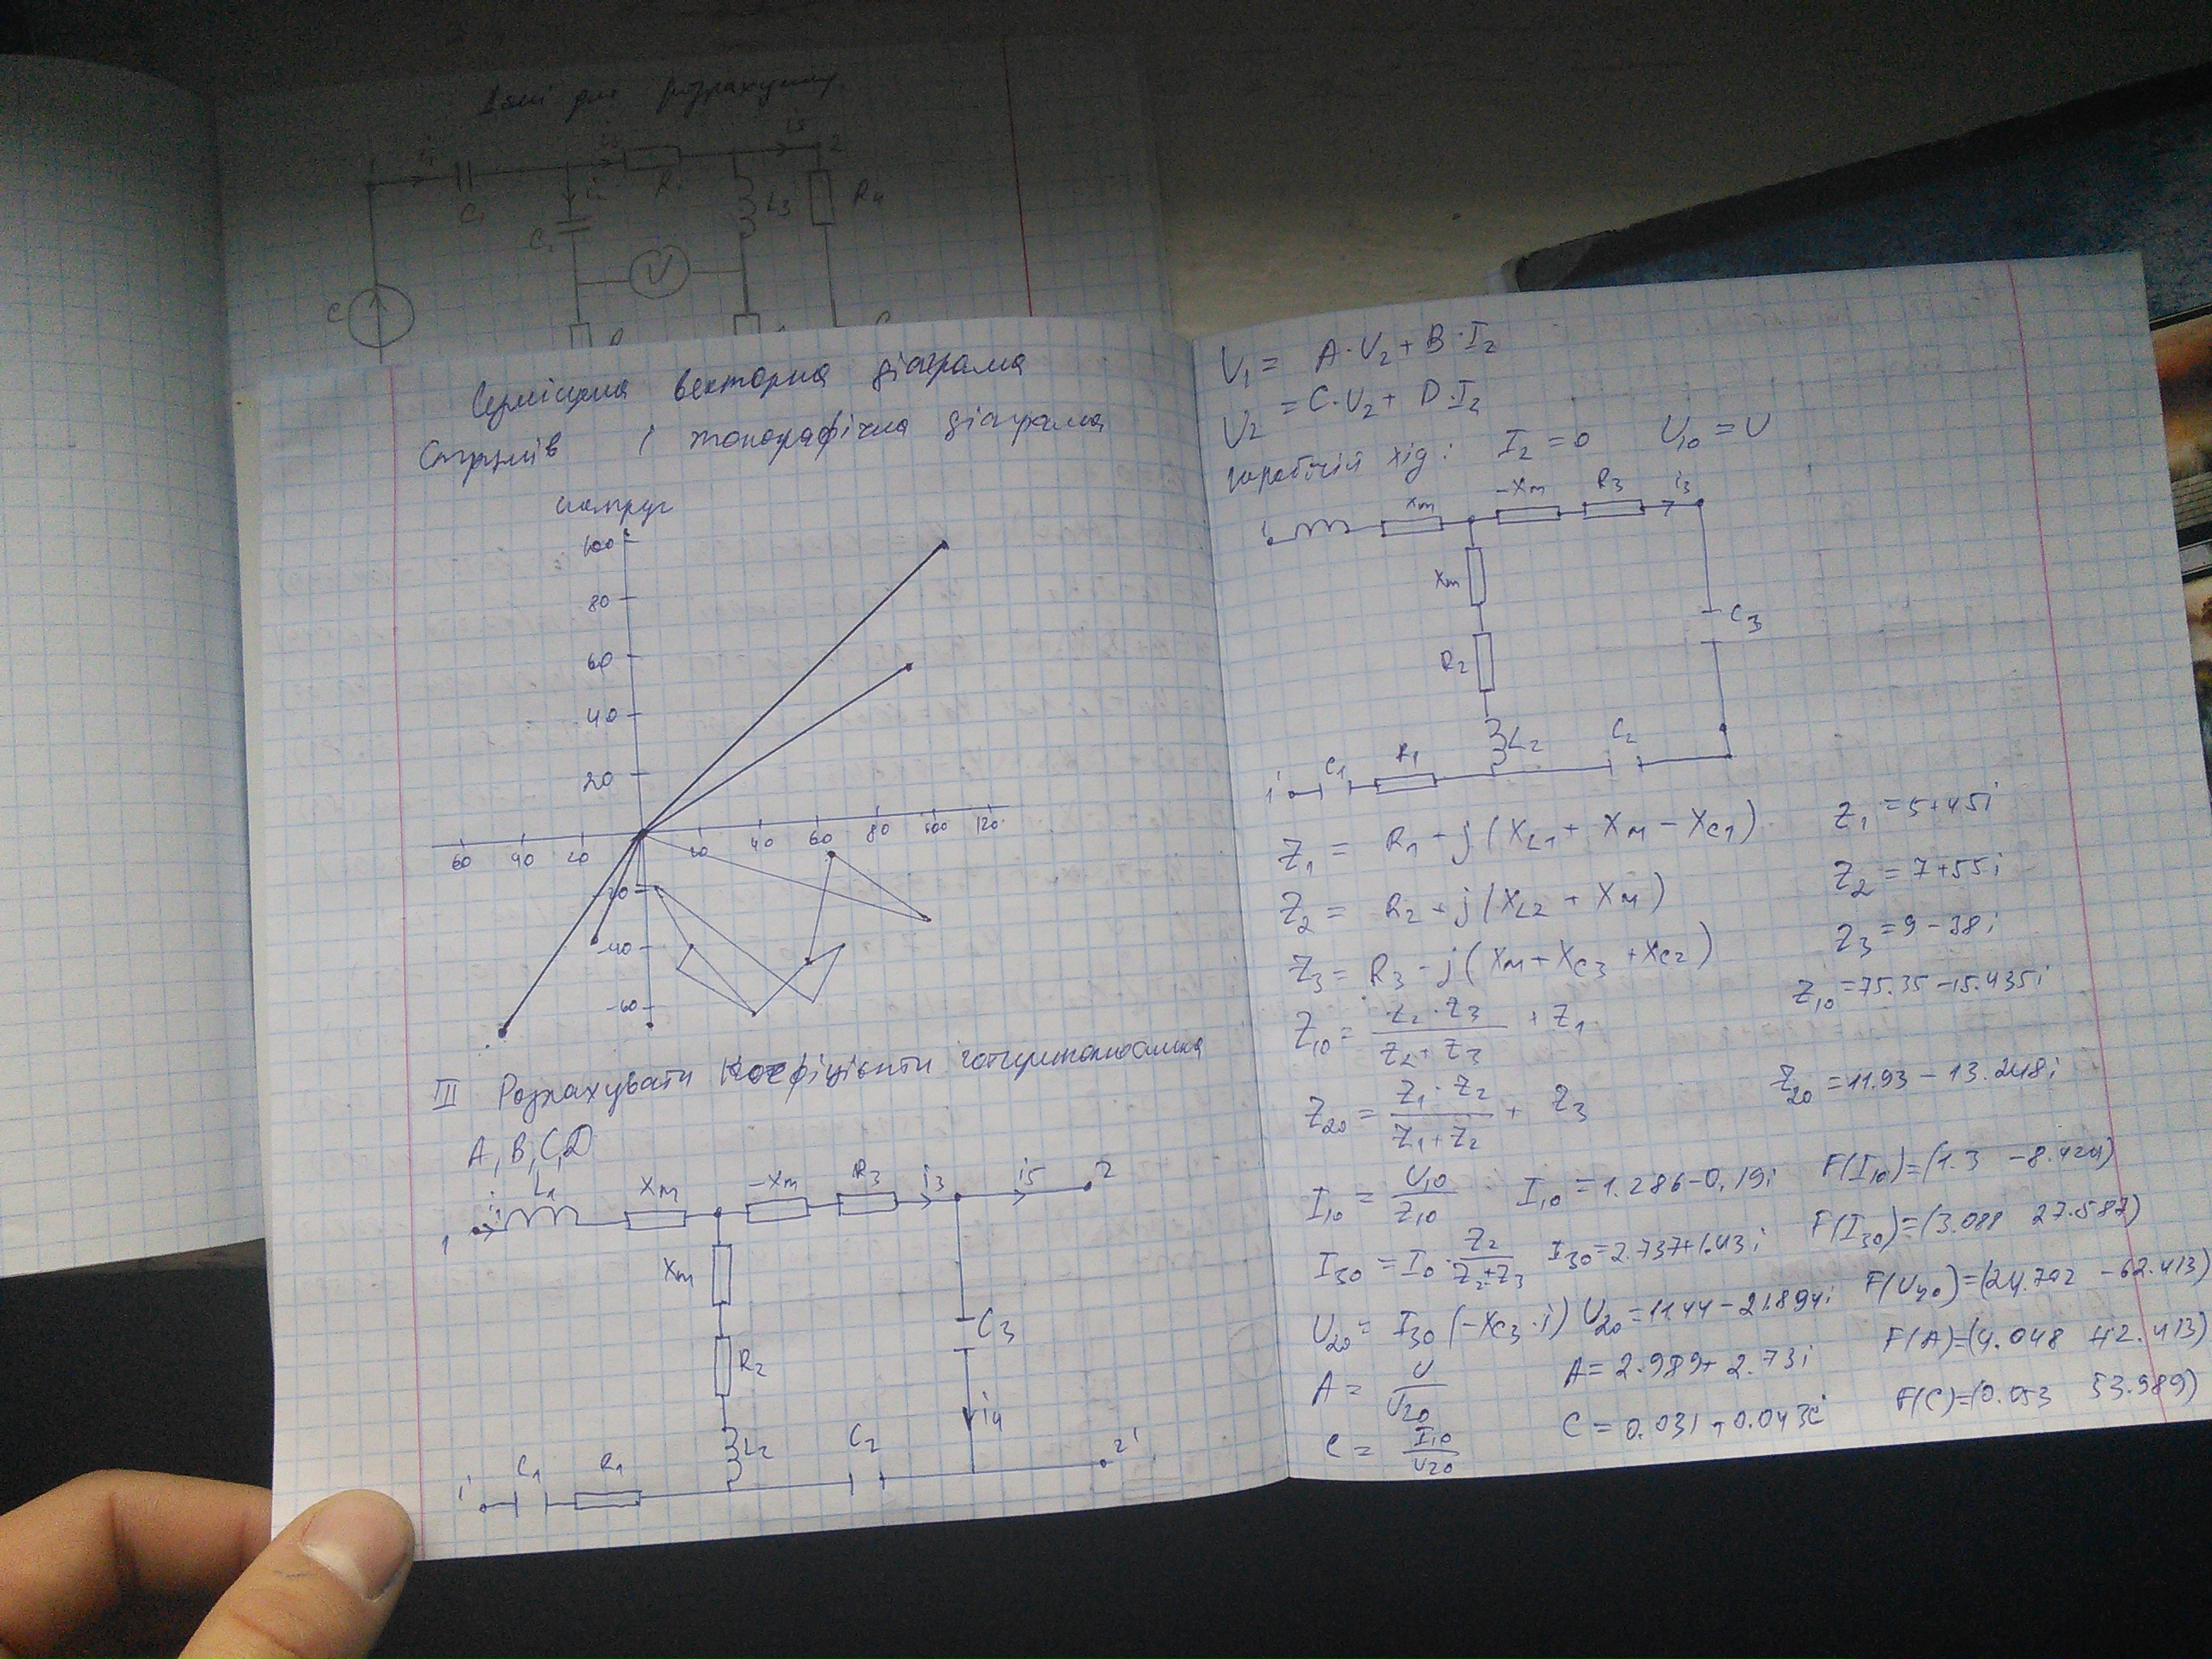 Дані для розрахунку
i₁
C₁
i₃
R₁
i₅
2
i₂
C₂
L₃
R₄
V
e
Суміщена векторна діаграма
Струмів і топографічна діаграма
напруг
100
80
60
40
20
60 40 20 20 40 60 80 100 120
-20
-40
-60
III Розрахувати Коефіцієнти чотириполюсника
A, B, C, D
1 i₁ L₁ Xм -Xм R₃ i₃ i₅ 2
Xм
R₂
C₃
i₄
L₂
1' C₁ R₁ C₂ 2'
U₁ = A·U₂ + B·I₂
U₂ = C·U₂ + D·I₂
неробочій хід: I₂ = 0 U₁₀ = U
1 Xм -Xм R₃ i₃
Xм
R₂
C₃
L₂
1' C₁ R₁ C₂
Z₁ = R₁ + j(X_L1 + Xм - X_C1) Z₁ = 5+45i
Z₂ = R₂ + j(X_L2 + Xм) Z₂ = 7+55i
Z₃ = R₃ - j(Xм + X_C3 + X_C2) Z₃ = 9-38i
Z₁₀ = Z₂·Z₃ / Z₂+Z₃ + Z₁ Z₁₀ = 75.35-15.435i
Z₂₀ = Z₁·Z₂ / Z₁+Z₂ + Z₃ Z₂₀ = 11.93-13.248i
I₁₀ = U₁₀ / Z₁₀ I₁₀ = 1.286-0.19i F(I₁₀) = (1.3 -8.424)
I₃₀ = I₀ · Z₂ / Z₂+Z₃ I₃₀ = 2.737+1.43i F(I₃₀) = (3.088 27.587)
U₂₀ = I₃₀(-X_C3·i) U₂₀ = 11.44-21.894i F(U₂₀) = (24.702 -62.413)
A = U / U₂₀ A = 2.989+2.73i F(A) = (4.048 42.413)
C = I₁₀ / U₂₀ C = 0.031+0.043i F(C) = (0.053 53.989)